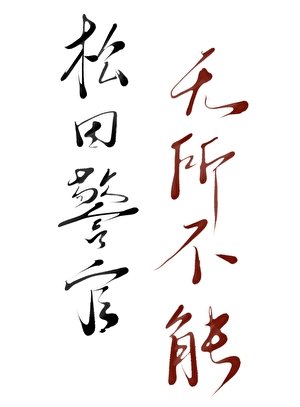 无所不能
松田警官